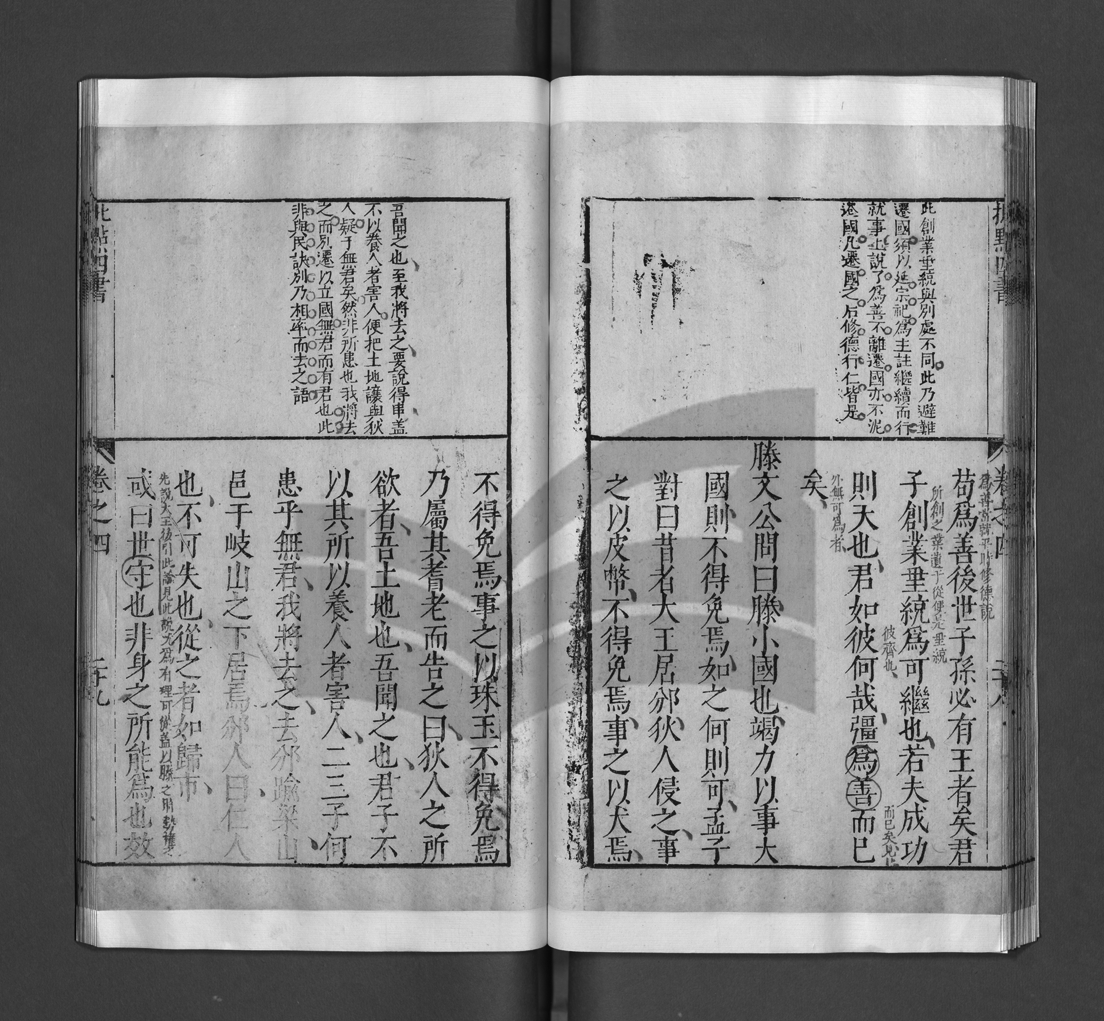 批點四書
卷之四
二十八
此創業垂統與別處不同此乃避難
遷國須以延宗祀為主註繼續而行
就事上說了為善不離遷國亦不泥
遷國凡遷國之后修德行仁皆是
為善當歸平時修德說
苟為善後世子孫必有王者矣君
所創之業
子創業垂統為可繼也若夫成功
彼齊也
則天也君如彼何哉彊為善而已
而已矣見
外無可為者
矣
滕文公問曰滕小國也竭力以事大
國則不得免焉如之何則可孟子
對曰昔者大王居邠狄人侵之事
之以皮幣不得免焉事之以犬馬
吾聞之也至我將去之要說得申蓋
不以養人者害人便把土地讓與狄
人疑于無君矣然非所患也我將去
之而別遷以立國無君而有君也此
非與民訣別乃相率而去之語
不得免焉事之以珠玉不得免焉
乃屬其耆老而告之曰狄人之所
欲者吾土地也吾聞之也君子不
以其所以養人者害人二三子何
患乎無君我將去之去邠踰梁山
邑于岐山之下居焉邠人曰仁人
也不可失也從之者如歸市
先說大王後引此論見此說尤為有理可從蓋以滕之時勢
或曰世守也非身之所能為也效
批點四書
卷之四
二十九